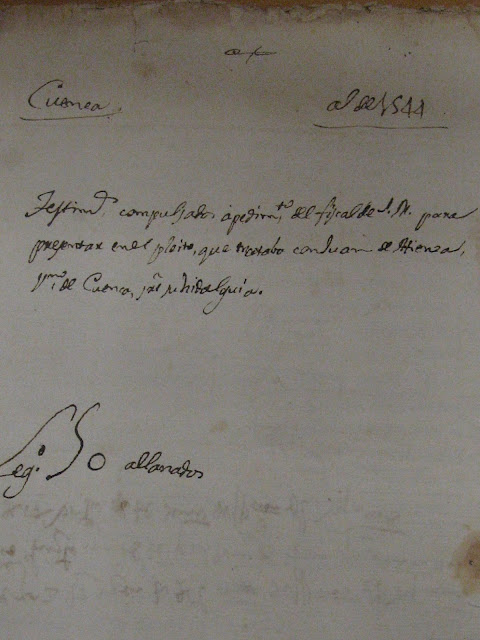 Cuenca
al de 1544
Testim.s compulsados á pedim.to del fiscal de S. M. para
presentar en el pleito, que trataba con Juan de Hienea,
v.no de Cuenca, s.re su hidalguia.
Leg.o 50 allanados